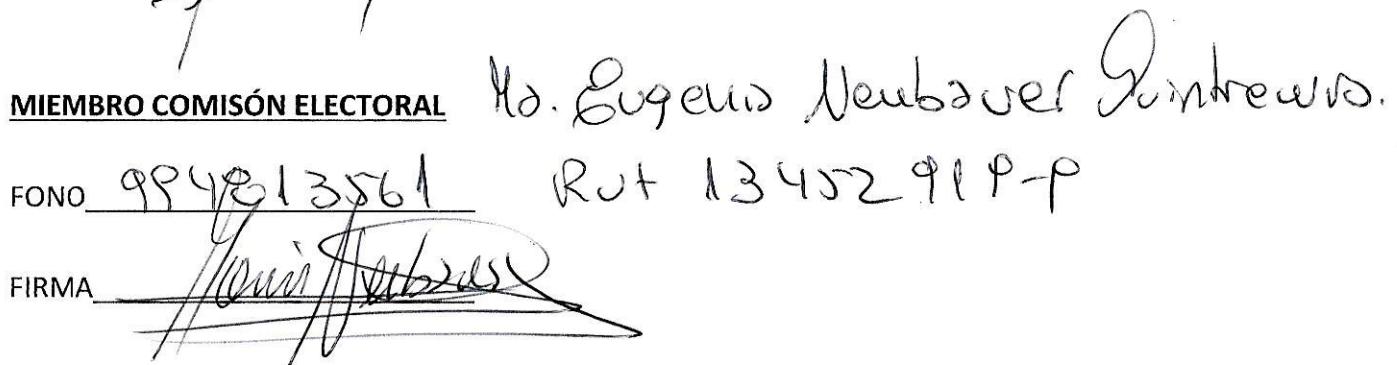 MIEMBRO COMISÓN ELECTORAL Ma. Eugenia Neubauer
FONO 994813561 Rut 13452919-9
FIRMA